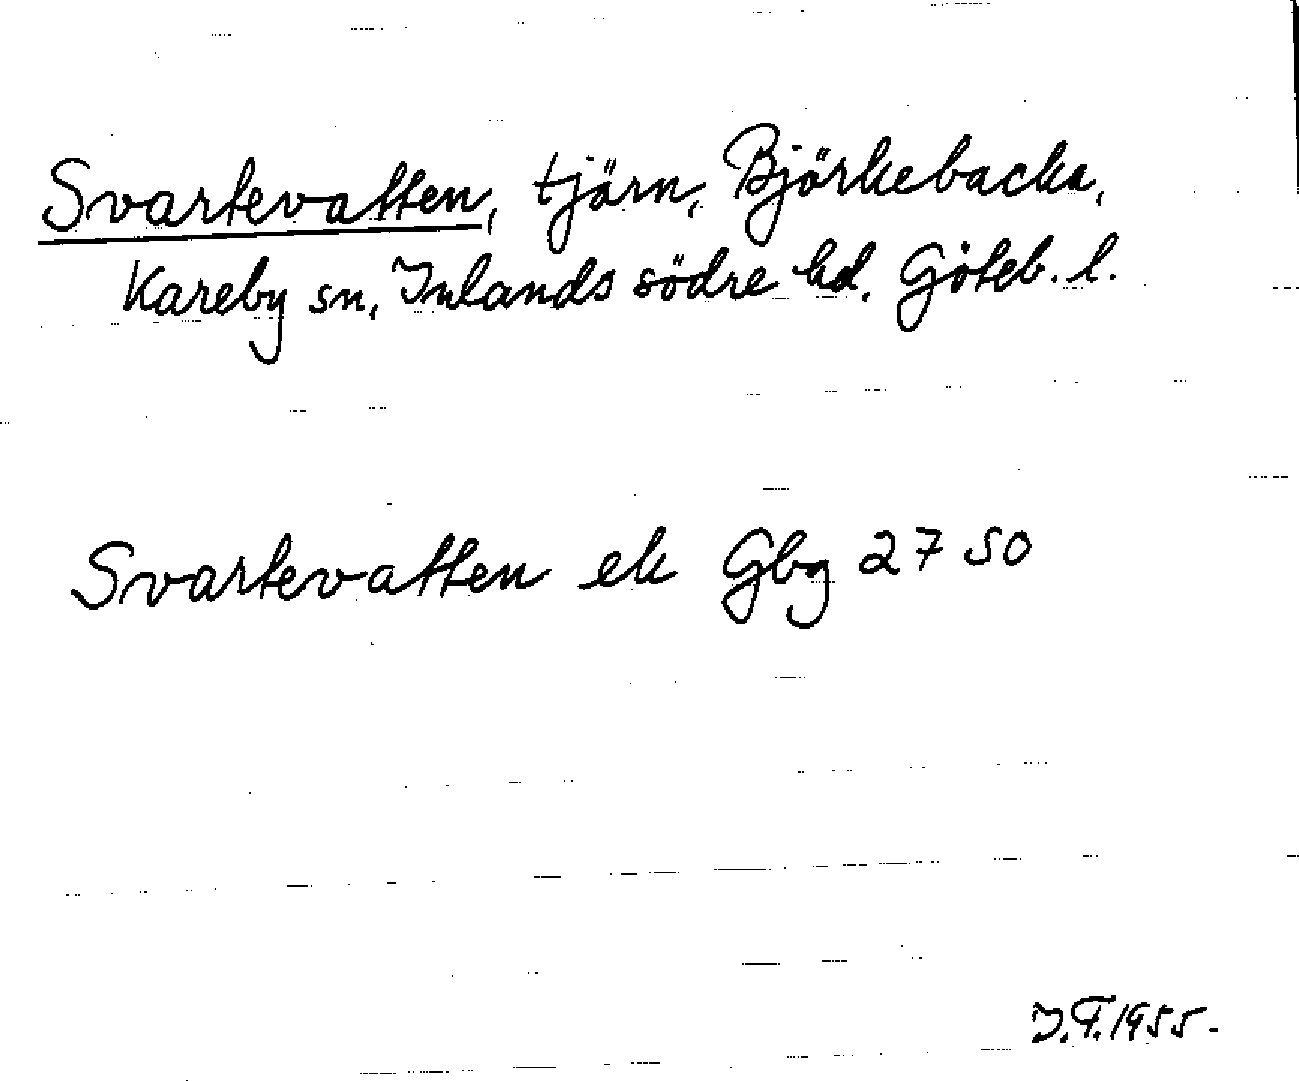 Svartevatten, tjärn, Björkebacka,
Kareby sn, Inlands södre hd. Göteb. l.
Svartevatten ek Gbg 27 50
J.F. 1955-